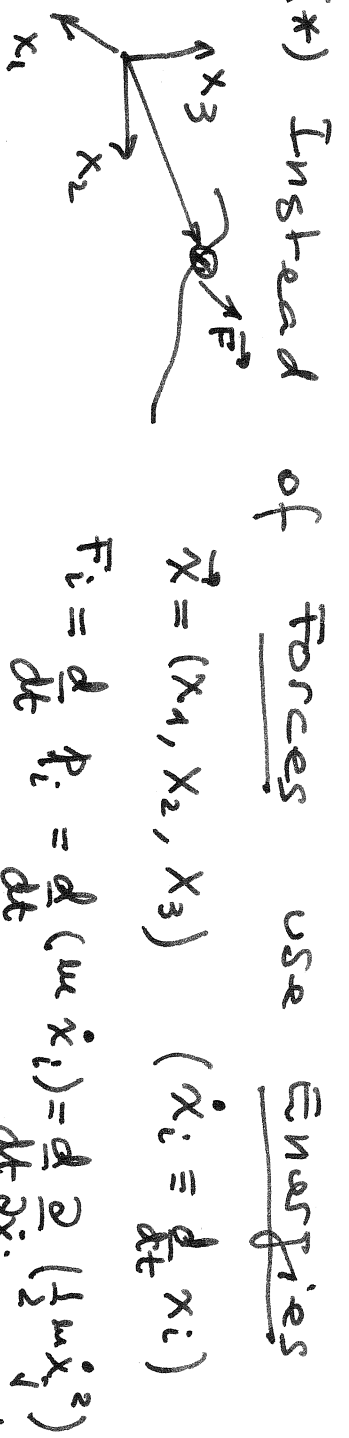 *) Instead of Forces use Energies
x₃
x₂
x₁
F⃗
x⃗ = (x₁, x₂, x₃) (ẋᵢ ≡ d/dt xᵢ)
Fᵢ = d/dt pᵢ = d/dt (m ẋᵢ) = d/dt ∂/∂ẋᵢ (1/2 m ẋⱼ²)